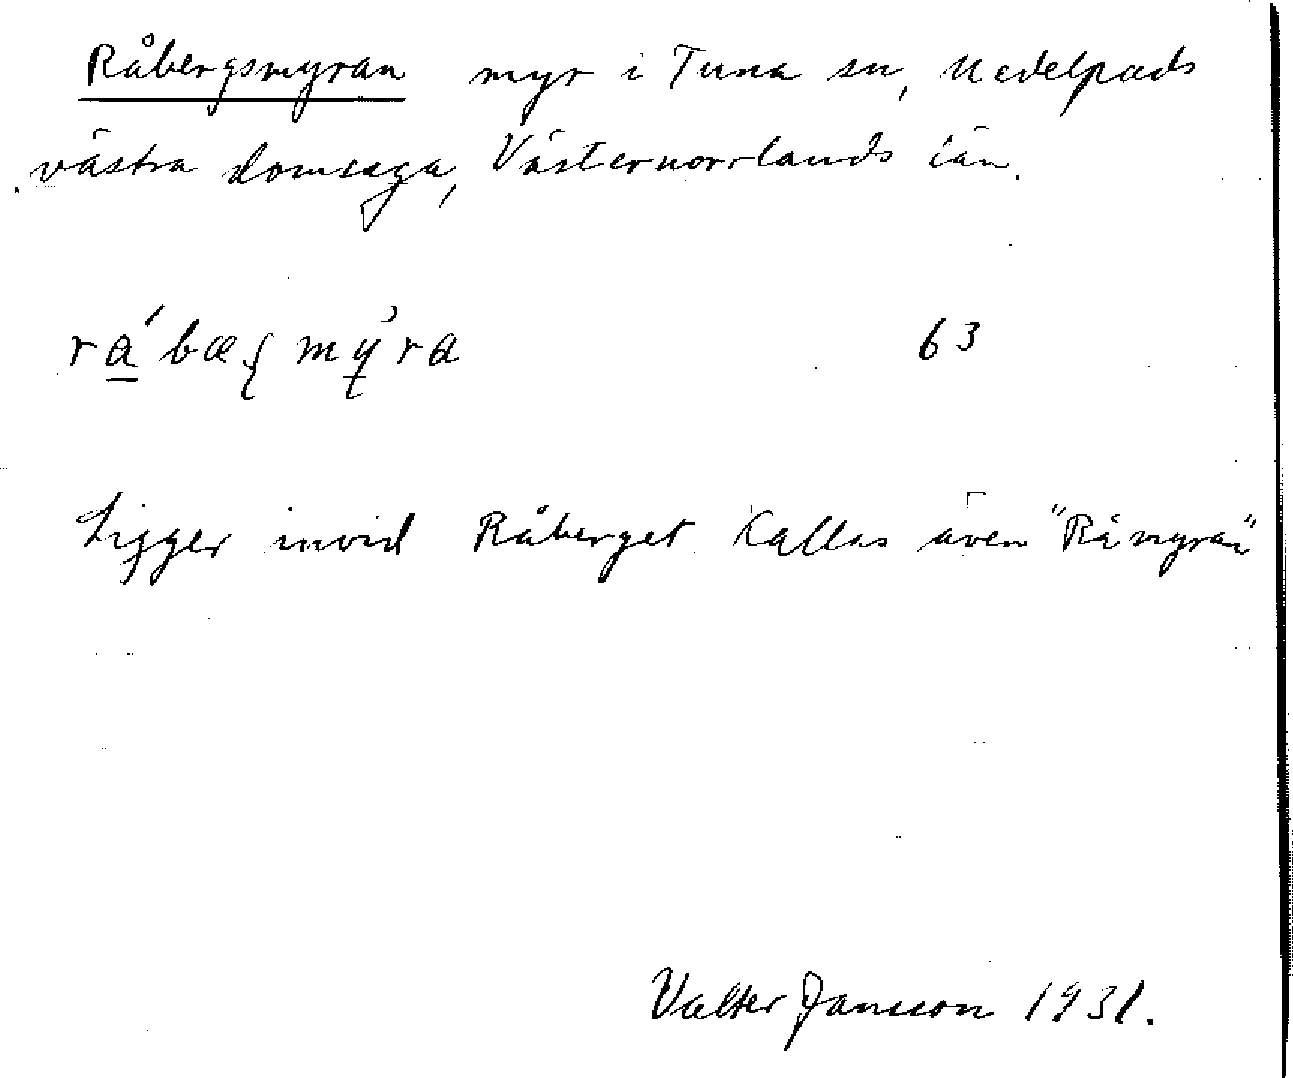 Råbergsmyran myr i Tuna sn, Medelpads
västra domsaga, Västernorrlands län.
rá̱bæʂmỳ̱ra 63
Ligger invid Råberget Kallas även "Råmyran"
Valter Jansson 1931.